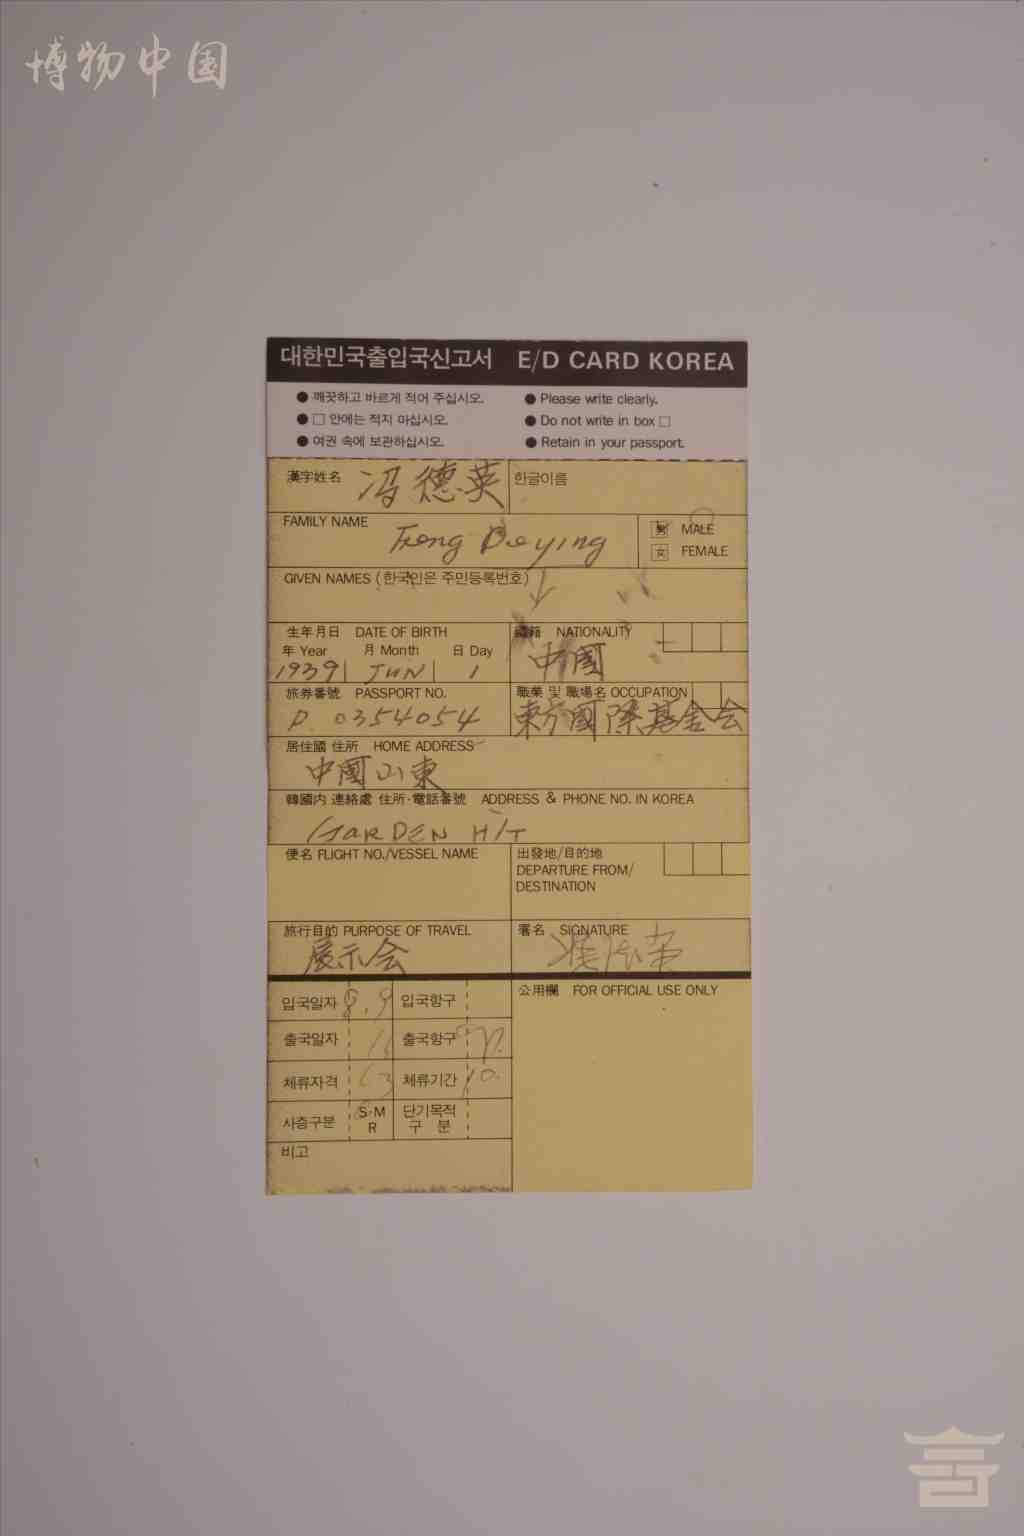 博物中国
대한민국출입국신고서 E/D CARD KOREA
● 깨끗하고 바르게 적어 주십시오. ● Please write clearly.
● □ 안에는 적지 마십시오. ● Do not write in box □
● 여권 속에 보관하십시오. ● Retain in your passport.
漢字姓名 冯德英 한글이름
FAMILY NAME Feng Deying 男 MALE
女 FEMALE
GIVEN NAMES (한국인은 주민등록번호)
生年月日 DATE OF BIRTH 國籍 NATIONALITY
年 Year 月 Month 日 Day 中國
1939 JUN 1
旅券番號 PASSPORT NO. 職業 및 職場名 OCCUPATION
P. 0354054 東方國際基金会
居住國 住所 HOME ADDRESS
中國山東
韓國內 連絡處 住所·電話番號 ADDRESS & PHONE NO. IN KOREA
GARDEN H/T
便名 FLIGHT NO./VESSEL NAME 出發地/目的地
DEPARTURE FROM/
DESTINATION
旅行目的 PURPOSE OF TRAVEL 署名 SIGNATURE
展示会
입국일자 8.9 입국항구 公用欄 FOR OFFICIAL USE ONLY
출국일자 출국항구
체류자격 체류기간 10.
사증구분 S·M 단기목적
R 구 분
비고